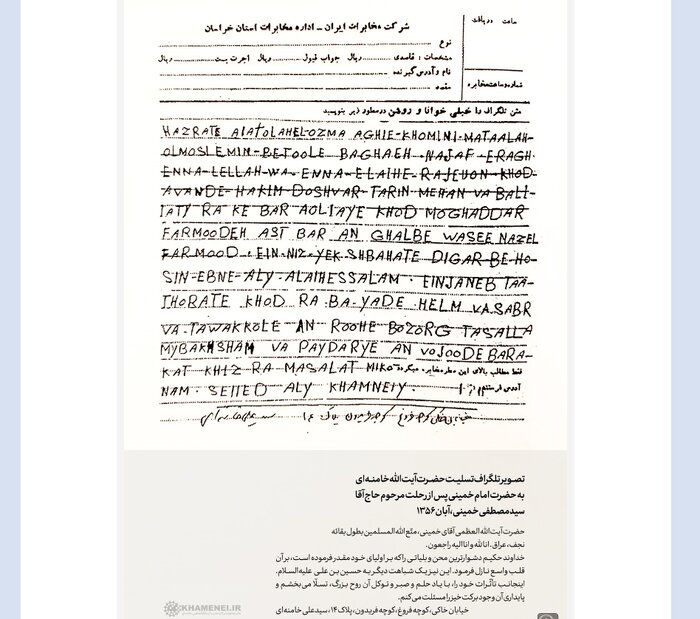 شرکت مخابرات ایران - اداره مخابرات استان خراسان
ساعت دریافت
نوع
مشخصات : قاصدی ریال جواب قبول ریال اجرت پست ریال
نام و آدرس گیرنده
مقصد
شماره و ساعت مخابره
متن تلگراف را خیلی خوانا و روشن در سطور زیر بنویسید
HAZRATE AIATOLAHEL-OZMA AGHIE-KHOMINI-MATAALAH-
OLMOSLEMIN-BETOOLE BAGHAEH NAJAF-ERAGH.
ENNA-LELLAH-WA-ENNA-ELAIHE-RAJEUON-KHOD-
AVANDE-HAKIM DOSHVAR-TARIN MEHAN VA BALI-
IATY RA KE BAR AOLIAYE KHOD MOGHADDAR
FARMOODEH AST BAR AN GHALBE WASEE NAZEL
FARMOOD. EIN-NIZ-YEK-SHBAHATE DIGAR-BE-HO-
SIN-EBNE-ALY ALAIHESSALAM. EINJANEB TAA-
THORATE KHOD RA BA YADE HELM VA SABR
VA TAWAKKOLE AN ROOHE BOZORG TASALLA
MYBAKHSHAM VA PAYDARYE AN VOJOODE BARA-
KAT KHIZ RA MASALAT MIKO فقط مطالب بالای این سطر مخابره میگردد
NAM. SEIIED ALY KHAMNEIY. آدرس فرستنده
تصویر تلگراف تسلیت حضرت آیت‌الله خامنه‌ای
به حضرت امام خمینی پس از رحلت مرحوم حاج آقا
سید مصطفی خمینی، آبان ۱۳۵۶
حضرت آیت‌الله العظمی آقای خمینی، متّع الله المسلمین بطول بقائه
نجف، عراق. انالله و انا الیه راجعون.
خداوند حکیم دشوارترین محن و بلیاتی را که بر اولیای خود مقدر فرموده است، بر آن
قلب واسع نازل فرمود. این نیز یک شباهت دیگر به حسین بن علی علیه السلام.
اینجانب تأثرات خود را، با یاد حلم و صبر و توکل آن روح بزرگ، تسلّا می‌بخشم و
پایداری آن وجود برکت خیز را مسئلت می‌کنم.
خیابان خاکی، کوچه فروغ، کوچه فریدون، پلاک ۱۴، سیدعلی خامنه‌ای
KHAMENEI.IR